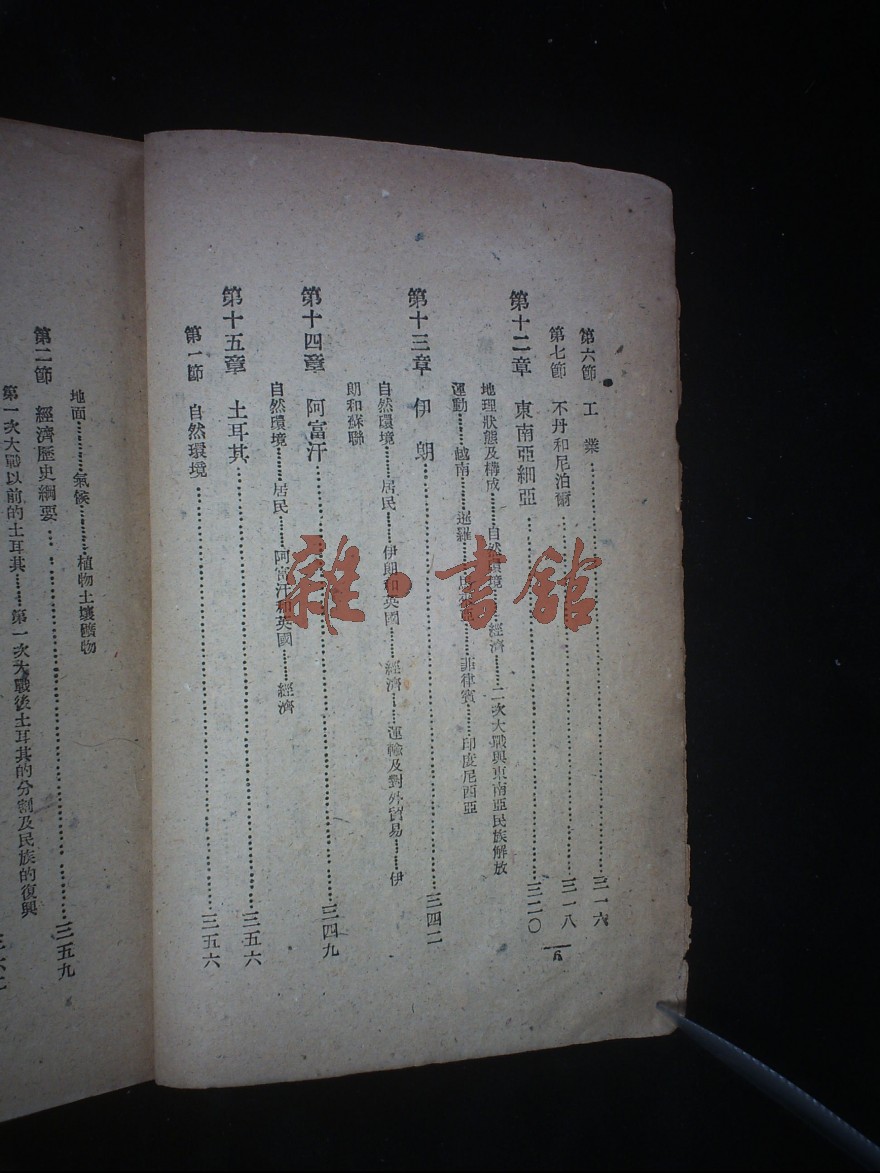 第六節 工業……三一六
第七節 不丹和尼泊爾……三一八
第十二章 東南亞細亞……三二〇
地理狀態及構成……自然環境……經濟……二次大戰與東南亞民族解放
運動……越南……暹羅……馬來亞……菲律賓……印度尼西亞
第十三章 伊朗……三四二
自然環境……居民……伊朗和英國……經濟……運輸及對外貿易……伊
朗和蘇聯
第十四章 阿富汗……三四九
自然環境……居民……阿富汗和英國……經濟
第十五章 土耳其……三五六
第一節 自然環境……三五六
地面……氣候……植物土壤礦物
第二節 經濟歷史綱要……三五九
第一次大戰以前的土耳其……第一次大戰後土耳其的分割及民族的復興
雜·書館